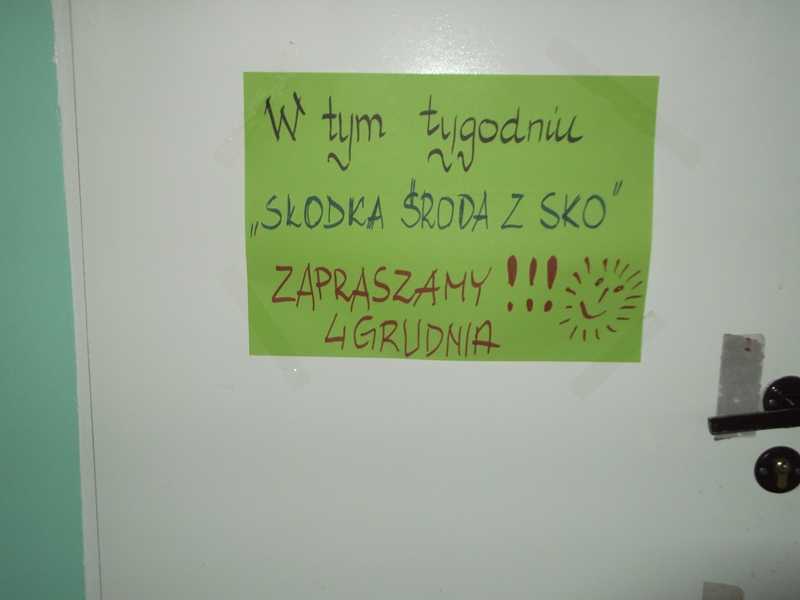 W tym tygodniu
„SŁODKA ŚRODA Z SKO"
ZAPRASZAMY !!!
4 GRUDNIA